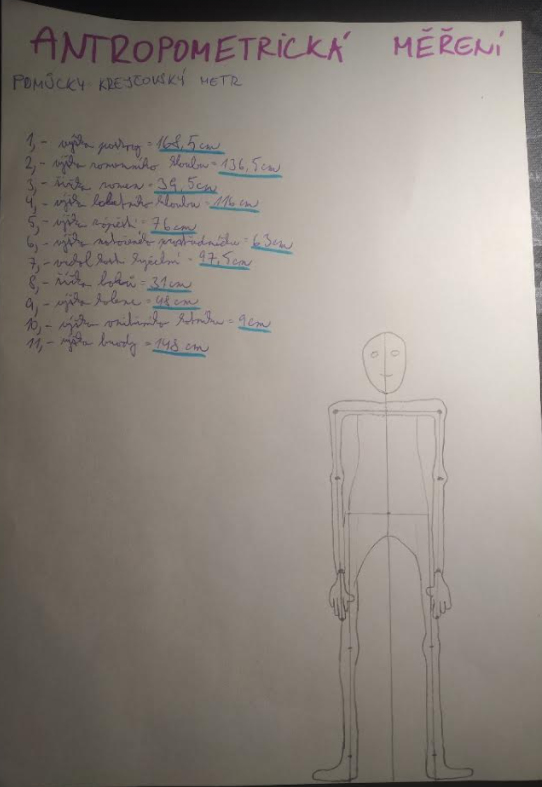 ANTROPOMETRICKÁ MĚŘENÍ
POMŮCKY: KREJČOVSKÝ METR
1, - výška postavy = 168,5 cm
2, - výška ramenního kloubu = 136,5 cm
3, - šířka ramen = 39,5 cm
4, - výška loketního kloubu = 116 cm
5, - výška zápěstí = 76 cm
6, - výška prostředníku = 63 cm
7, - kosti kyčelní = 97,5 cm
8, - šířka boků = 31 cm
9, - výška kolene = 48 cm
10, - výška kotníku = 9 cm
11, - výška brady = 148 cm